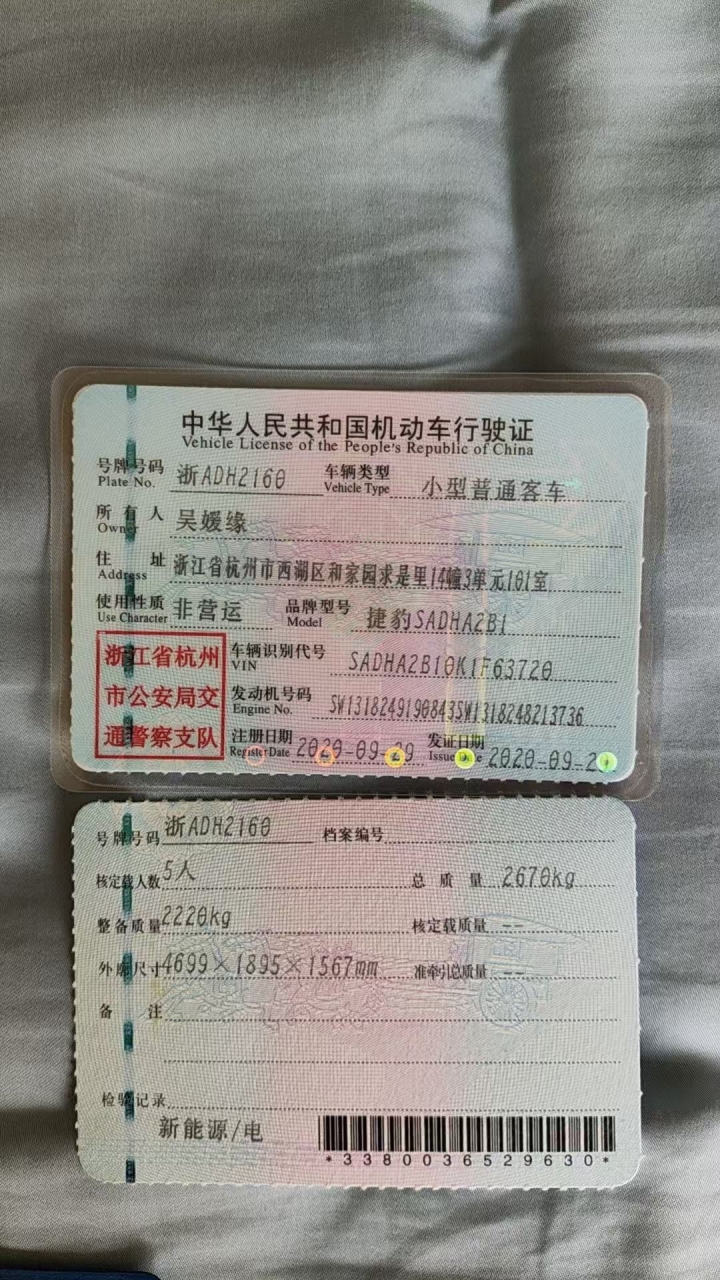 中华人民共和国机动车行驶证
Vehicle License of the People's Republic of China
号牌号码 浙ADH2160 车辆类型 小型普通客车
Plate No. Vehicle Type
所有人 吴媛缘
Owner
住址 浙江省杭州市西湖区和家园求是里14幢3单元101室
Address
使用性质 非营运 品牌型号 捷豹SADHA2B1
Use Character Model
浙江省杭州
市公安局交
通警察支队
车辆识别代号 SADHA2B10K1F63720
VIN
发动机号码 SW1318249190843SW1318248213736
Engine No.
注册日期 2020-09-29 发证日期 2020-09-2
Register Date Issue Date
号牌号码 浙ADH2160 档案编号
核定载人数 5人 总质量 2670kg
整备质量 2220kg 核定载质量 --
外廓尺寸 4699×1895×1567mm 准牵引总质量 --
备注
检验记录
新能源/电
*3380036529630*